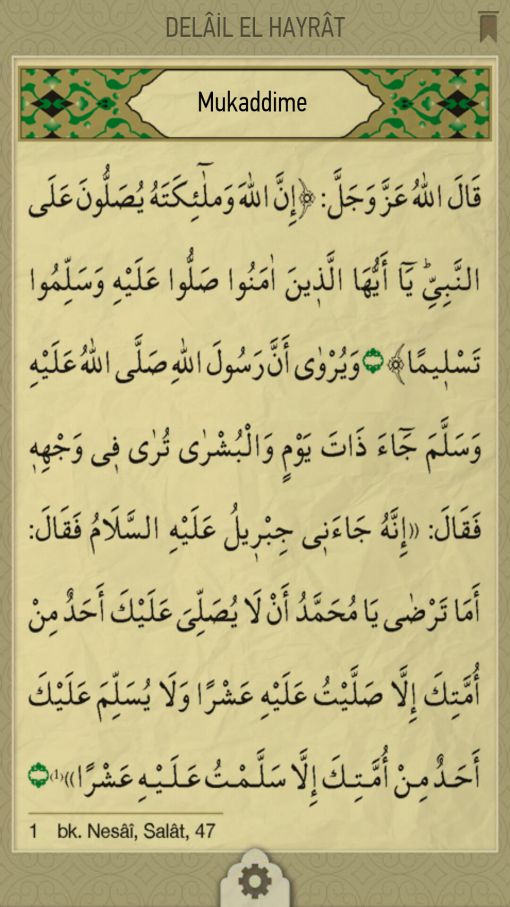 DELÂİL EL HAYRÂT
Mukaddime
قَالَ اللهُ عَزَّ وَجَلَّ: ﴿إِنَّ اللهَ وَمَلٰٓئِكَتَهُ يُصَلُّونَ عَلَى
النَّبِيِّۜ يَٓا أَيُّهَا الَّذ۪ينَ اٰمَنُوا صَلُّوا عَلَيْهِ وَسَلِّمُوا
تَسْل۪يمًا﴾ وَيُرْوٰى أَنَّ رَسُولَ اللهِ صَلَّى اللهُ عَلَيْهِ
وَسَلَّمَ جَٓاءَ ذَاتَ يَوْمٍ وَالْبُشْرٰى تُرٰى ف۪ى وَجْهِه۪
فَقَالَ: «إِنَّهُ جَاءَن۪ى جِبْر۪يلُ عَلَيْهِ السَّلَامُ فَقَالَ:
أَمَا تَرْضٰى يَا مُحَمَّدُ أَنْ لَا يُصَلِّىَ عَلَيْكَ أَحَدٌ مِنْ
أُمَّتِكَ إِلَّا صَلَّيْتُ عَلَيْهِ عَشْرًا وَلَا يُسَلِّمَ عَلَيْكَ
أَحَدٌ مِنْ أُمَّتِكَ إِلَّا سَلَّمْتُ عَلَيْهِ عَشْرًا»(1)
1 bk. Nesâî, Salât, 47